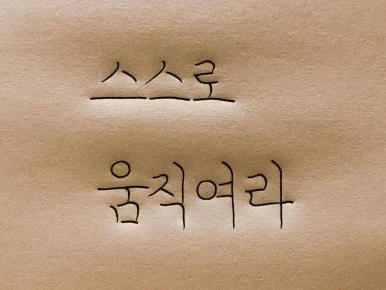 스스로
움직여라